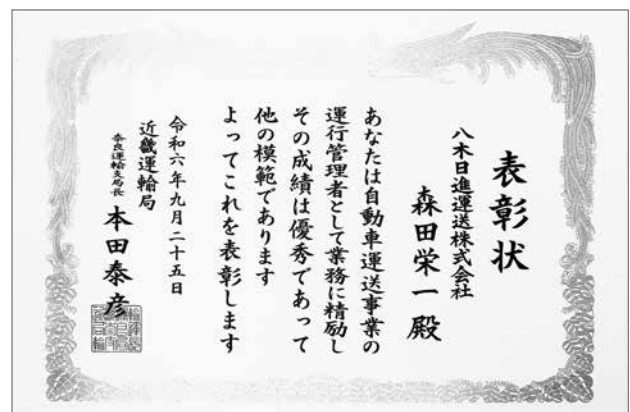 表彰状
八木日進運送株式会社
森田栄一殿
あなたは自動車運送事業の
運行管理者として業務に精励し
その成績は優秀であって
他の模範であります
よってこれを表彰します
令和六年九月二十五日
近畿運輸局
奈良運輸支局長 本田泰彦